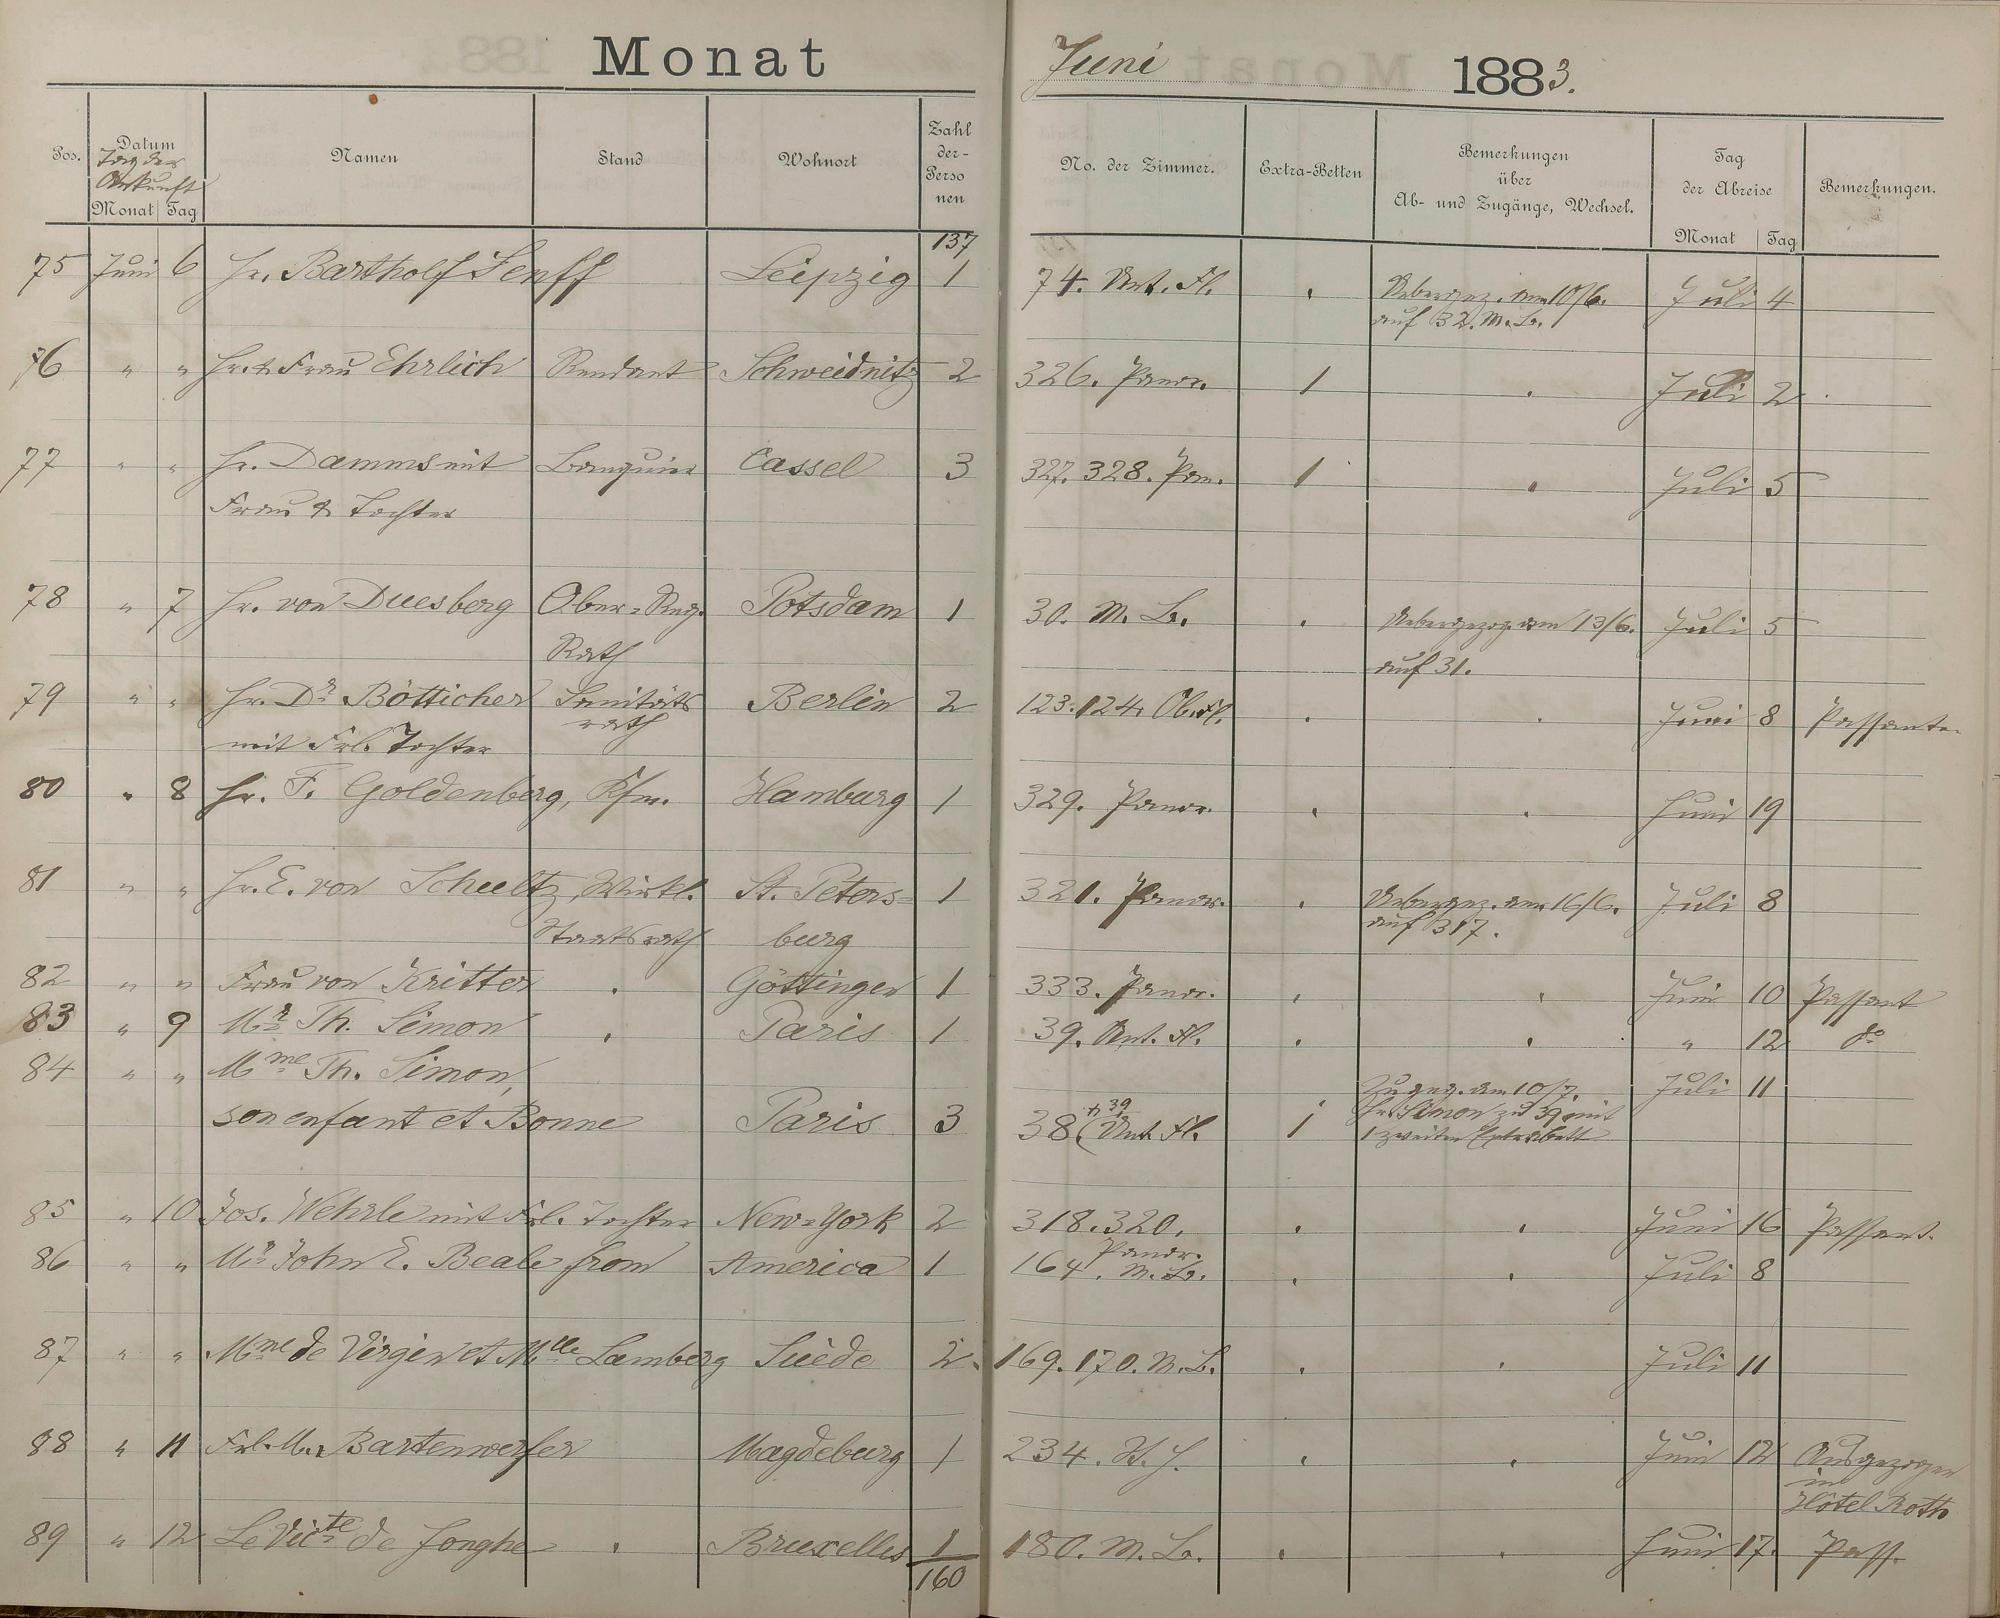 Monat Juni 1883.
Pos. Datum Namen Stand Wohnort Zahl der Personen No. der Zimmer. Extra-Betten Bemerkungen über Ab- und Zugänge, Wechsel. Tag der Abreise Bemerkungen.
Tag der Ankunft
Monat Tag Monat Tag
137
75 Juni 6 Hr. Bartholf Senff Leipzig 1 74. Unt. Fl. Uebergez. am 10/6. Juli 4
auf 32. M. B.
76 " " Hr. & Frau Ehrlich Rendant Schweidnitz 2 326. Panor. 1 Juli 2
77 " " Hr. Damms mit Banquier Cassel 3 327. 328. Pan. 1 Juli 5
Frau & Tochter
78 " 7 Hr. von Duesberg Ober-Reg. Potsdam 1 30. M. B. Uebergezog. am 13/6. Juli 5
Rath auf 31.
79 " " Hr. Dr. Bötticher Sanitäts Berlin 2 123. 124. Ob. Fl. Juni 8 Passanten
mit Frl. Tochter rath
80 " 8 Hr. F. Goldenberg, Kfm. Hamburg 1 329. Panor. Juni 19
81 " " Hr. E. von Schultz, Wirkl. St. Peters- 1 321. Panor. Uebergez. am 16/6. Juli 8
Staatsrath burg auf 317.
82 " " Frau von Kritter Göttingen 1 333. Panor. Juni 10 Passant
83 " 9 Mr. Th. Simon Paris 1 39. Unt. Fl. " 12 do
84 " " Mme Th. Simon, Zugez. am 10/7. Juli 11
son enfant et Bonne Paris 3 38 (+ 39 Unt. Fl. 1 Hr. Simon zu 39 mit
1 zweiten Extrabett
85 " 10 Jos. Wehrle mit Frl. Tochter New-York 2 318. 320. Juni 16 Passant.
Panor.
86 " " Mr. John E. Beale from America 1 164. M. B. Juli 8
87 " " Mme de Virgin et Mlle Lamberg Suède 2. 169. 170. M. B. Juli 11
88 " 11 Frl. M. Bartenwerfer Magdeburg 1 234. Juni 12 Ausgezogen
in
Hôtel Roth
89 " 12 Le Victe de Jonghe Bruxelles 1 180. M. B. Juni 17. Pass.
160